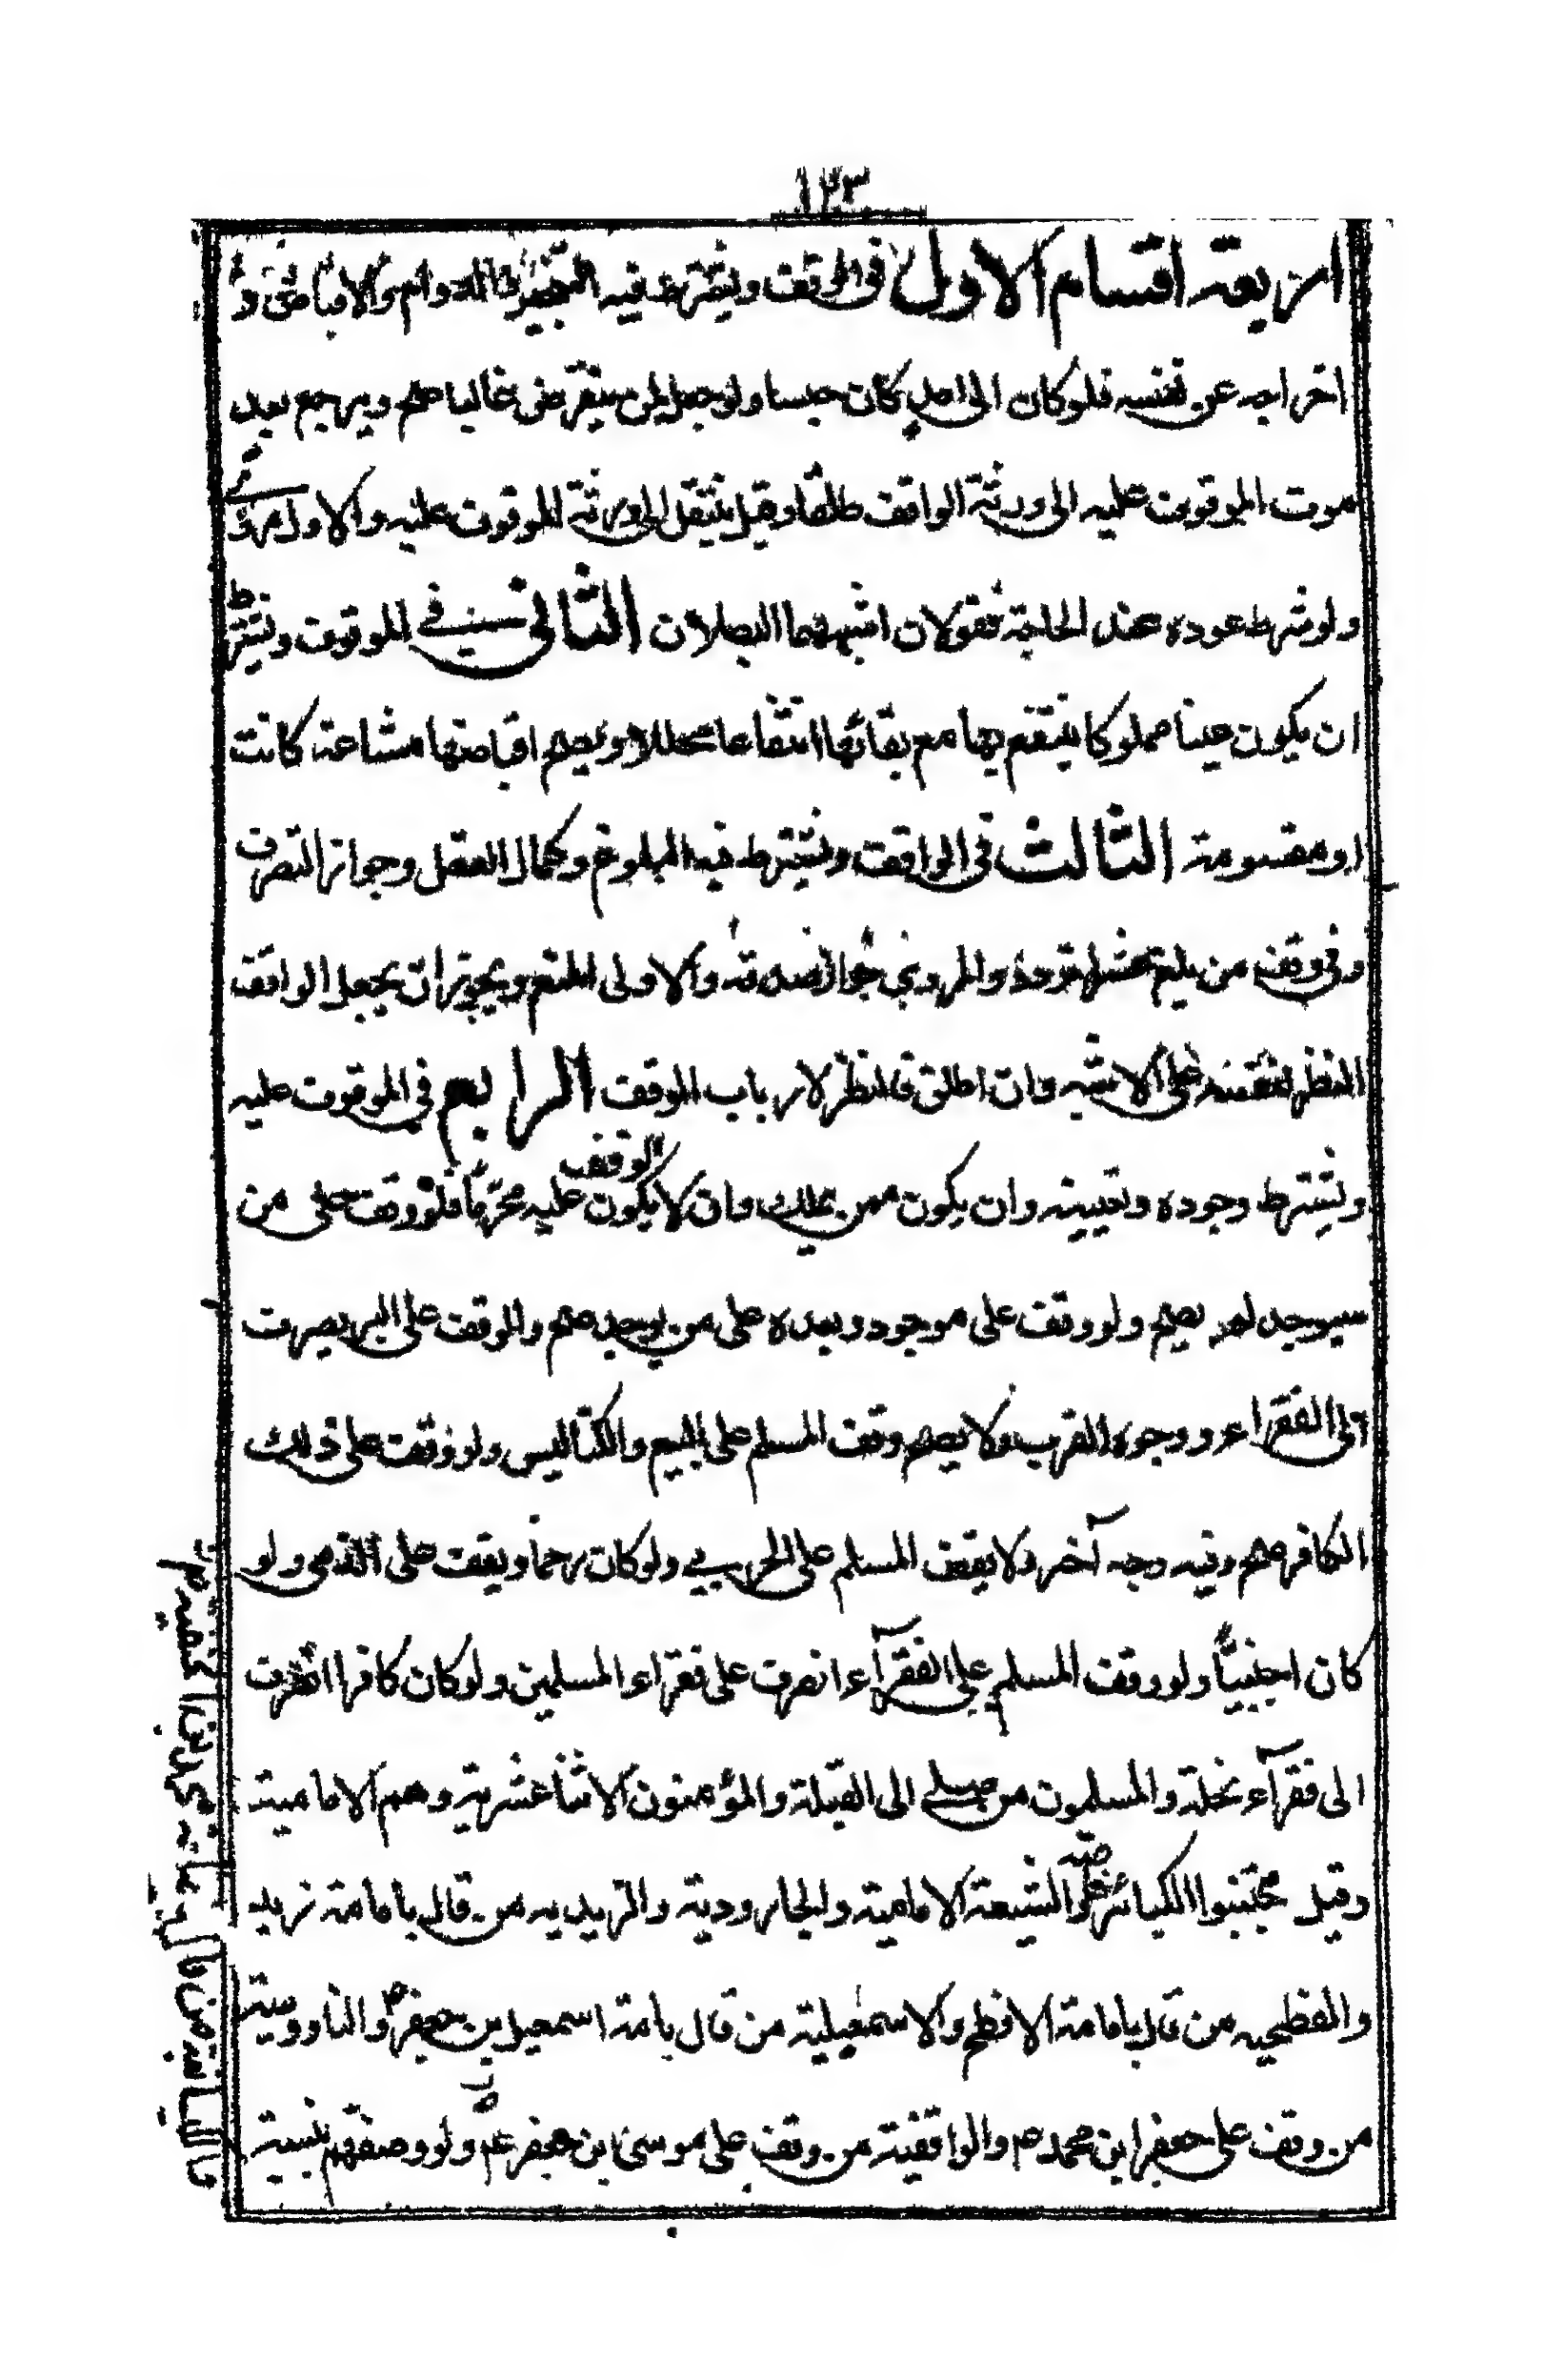 ١٢٣
اربعة اقسام الاول في الوقف ويشترط فيه التنجيز والدوام والاقباض و
اخراجه عن نفسه فلو كان الى اجل كان حبسا ولو جعل لمن ينقرض غالبا صح ويرجع بعد
موت الموقوف عليه الى ورثة الواقف طلقا وقيل ينتقل الى ورثة الموقوف عليه والاول مروي
ولو شرط عوده عند الحاجة فقولان اشبههما البطلان الثاني في الموقوف ويشترط
ان يكون عينا مملوكا ينتفع بها مع بقائها انتفاعا محللا ويصح اقباضها مشاعة كانت
او مقسومة الثالث في الواقف ويشترط فيه البلوغ وكمال العقل وجواز التصرف
وفي وقف من بلغ عشرا تردد والمروي جواز صدقته والاولى المنع ويجوز ان يجعل الواقف
النظر لنفسه على الاشبه وان اطلق فالنظر لارباب الوقف الرابع في الموقوف عليه
ويشترط وجوده وتعيينه وان يكون ممن يملك وان لا يكون الوقف عليه محرّما فلو وقف على من
سيوجد لم يصح ولو وقف على موجود وبعده على من يوجد صح والوقف على البر يصرف
الى الفقراء ووجوه القرب ولا يصح وقف المسلم على البيع والكنائس ولو وقف على ذلك
الكافر صح وفيه وجه آخر ولا يقف المسلم على الحربي ولو كان رحما ويقف على الذمي ولو
كان اجنبيّا ولو وقف المسلم على الفقرآء انصرف على فقراء المسلمين ولو كان كافرا انصرف
الى فقرآء نحلته والمسلمون من صلى الى القبلة والمؤمنون الاثنا عشرية وهم الامامية
وقيل مجتنبوا الكبائر خاصة والشيعة الامامية والجارودية والزيدية من قال بامامة زيد
والفطحية من قال بامامة الافطح والاسمعيلية من قال بامامة اسمعيل بن جعفر والناووسية
من وقف على جعفر ابن محمد والواقفية من وقف على موسى ابن جعفر عم ولو وصفهم بنسبة